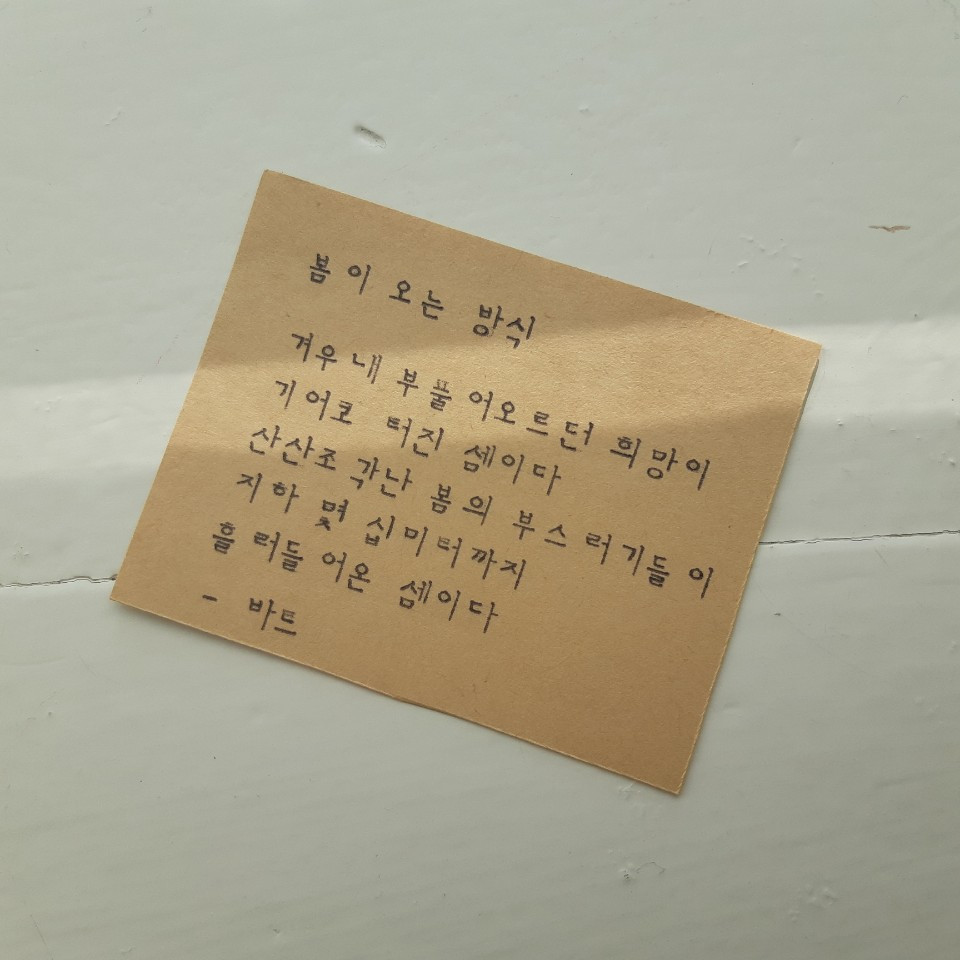 봄이 오는 방식
겨우내 부풀어오르던 희망이
기어코 터진 셈이다
산산조각난 봄의 부스러기들이
지하 몇 십미터까지
흘러들어온 셈이다
- 바트